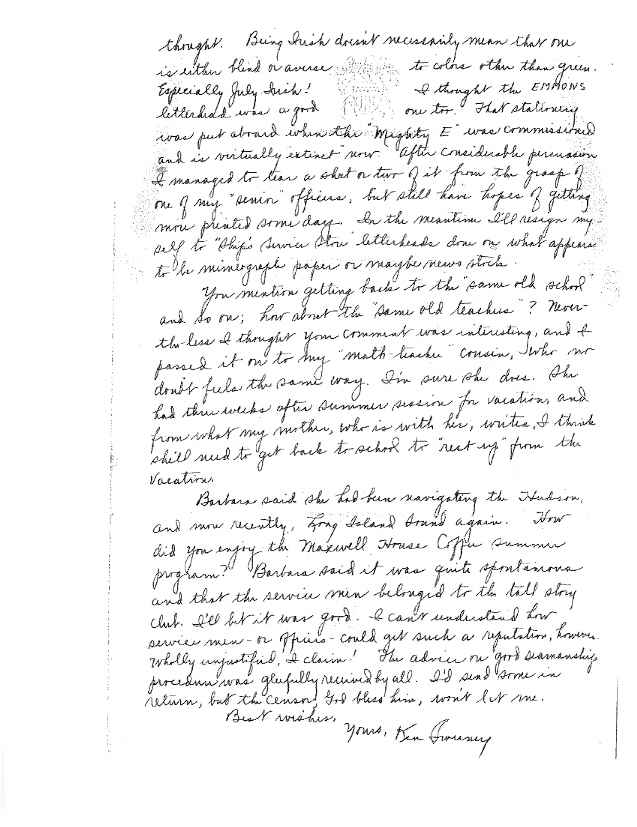 thought. Being Irish doesn't necessarily mean that one
is either blind or averse to colors other than green.
Especially July Irish! I thought the EMMONS
letterhead was a good one too. That stationery
was put aboard when the "Mighty E" was commissioned
and is virtually extinct now. After considerable persuasion
I managed to tear a sheet or two of it from the grasp of
one of my "senior" officers, but still have hopes of getting
more printed some day. In the meantime I'll resign my-
self to "Ship's Service Store" letterheads done on what appears
to be mimeograph paper or maybe news stock.
You mention getting back to the "same old school"
and so on; how about the "same old teachers"? Never-
the-less I thought your comment was interesting, and I
passed it on to my "math-teacher" cousin, who no
doubt feels the same way. I'm sure she does. She
had three weeks after summer session for vacation, and
from what my mother, who is with her, writes, I think
she'll need to get back to school to "rest up" from the
vacation.
Barbara said she had been navigating the Hudson,
and more recently, Long Island Sound again. How
did you enjoy the Maxwell House Coffee summer
program? Barbara said it was quite spontaneous
and that the service men belonged to the tall story
club. I'll bet it was good. I can't understand how
service men - or officers - could get such a reputation, however.
Wholly unjustified, I claim! The advice on good seamanship
procedure was gleefully received by all. I'd send some in
return, but the censor, God bless him, won't let me.
Best wishes,
Yours, Ken